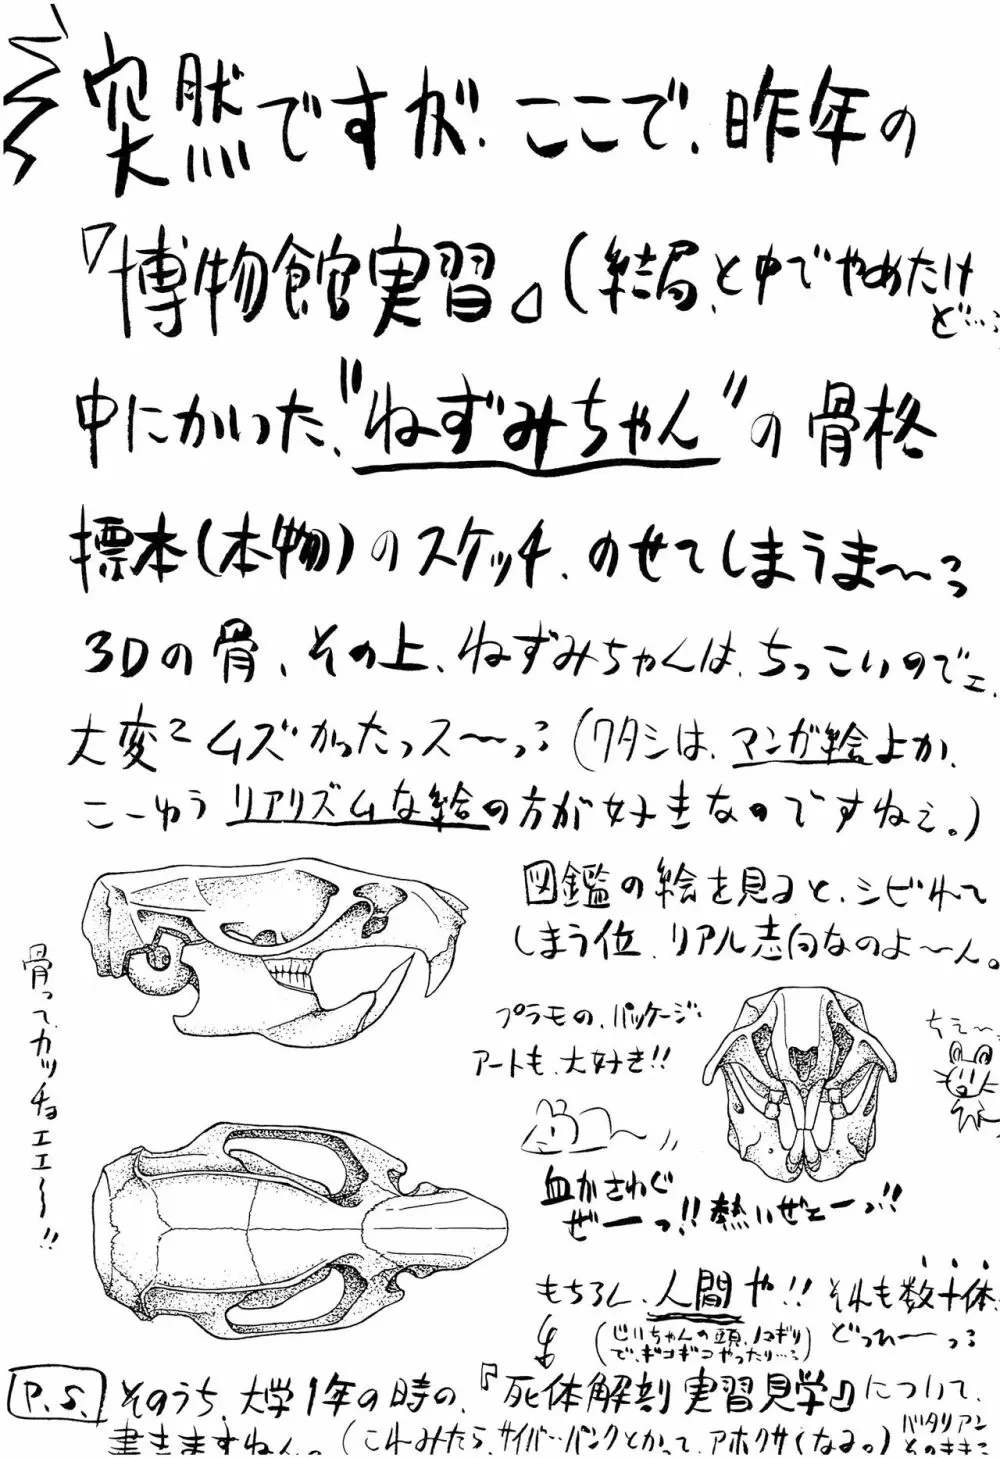 突然ですが、ここで、昨年の
『博物館実習』(結局、と中でやめたけ
ど…
中にかいた、"ねずみちゃん"の骨格
標本(本物)のスケッチ、のせてしまうま〜っ
3Dの骨、その上、ねずみちゃんは、ちっこいのでェ、
大変ムズかったっス〜っ(ワタシは、マンガ絵よか、
こーゆうリアリズムな絵の方が好きなのですねぇ。)
図鑑の絵を見ると、シビれて
しまう位、リアル志向なのよ〜ん。
プラモの、パッケージ
アートも、大好き!!
骨って、カッチョエエ〜!!
ちえ〜
血がさわぐ
ぜーっ!!熱いぜェーっ!!
もちろん、人間や!!それも数十体
(じいちゃんの頭、ノコギリ
で、ギコギコやったり…)
どっひーっ
P.S. そのうち、大学1年の時の、『死体解剖実習見学』について、
書きますねん。(これみたら、サイバーパンクとかって、アホクサくなる。)
バタリアン
そのまま